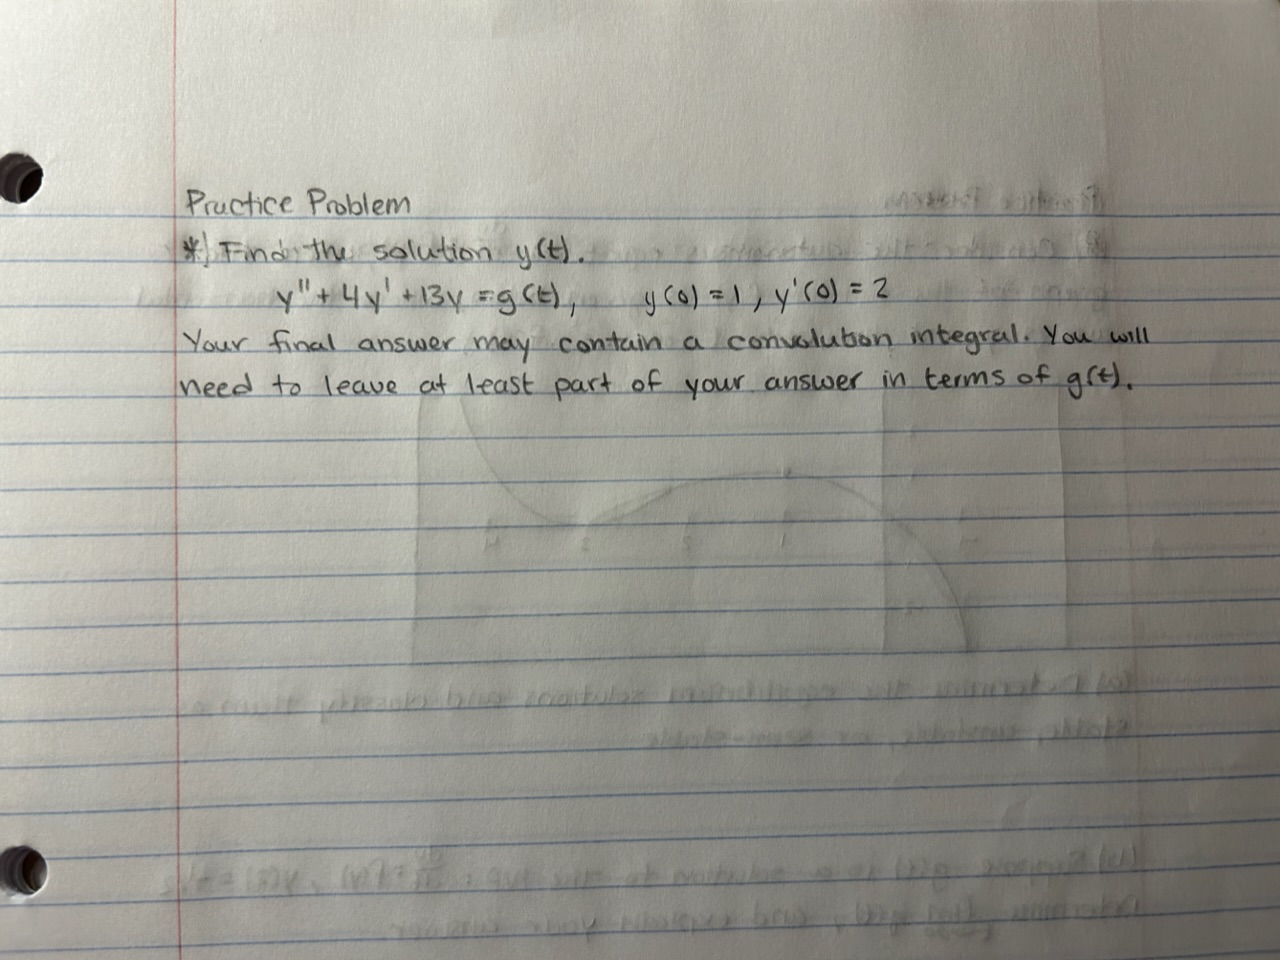 Practice Problem
*) Find the solution y(t).
y'' + 4y' + 13y = g(t), y(0) = 1, y'(0) = 2
Your final answer may contain a convolution integral. You will
need to leave at least part of your answer in terms of g(t).